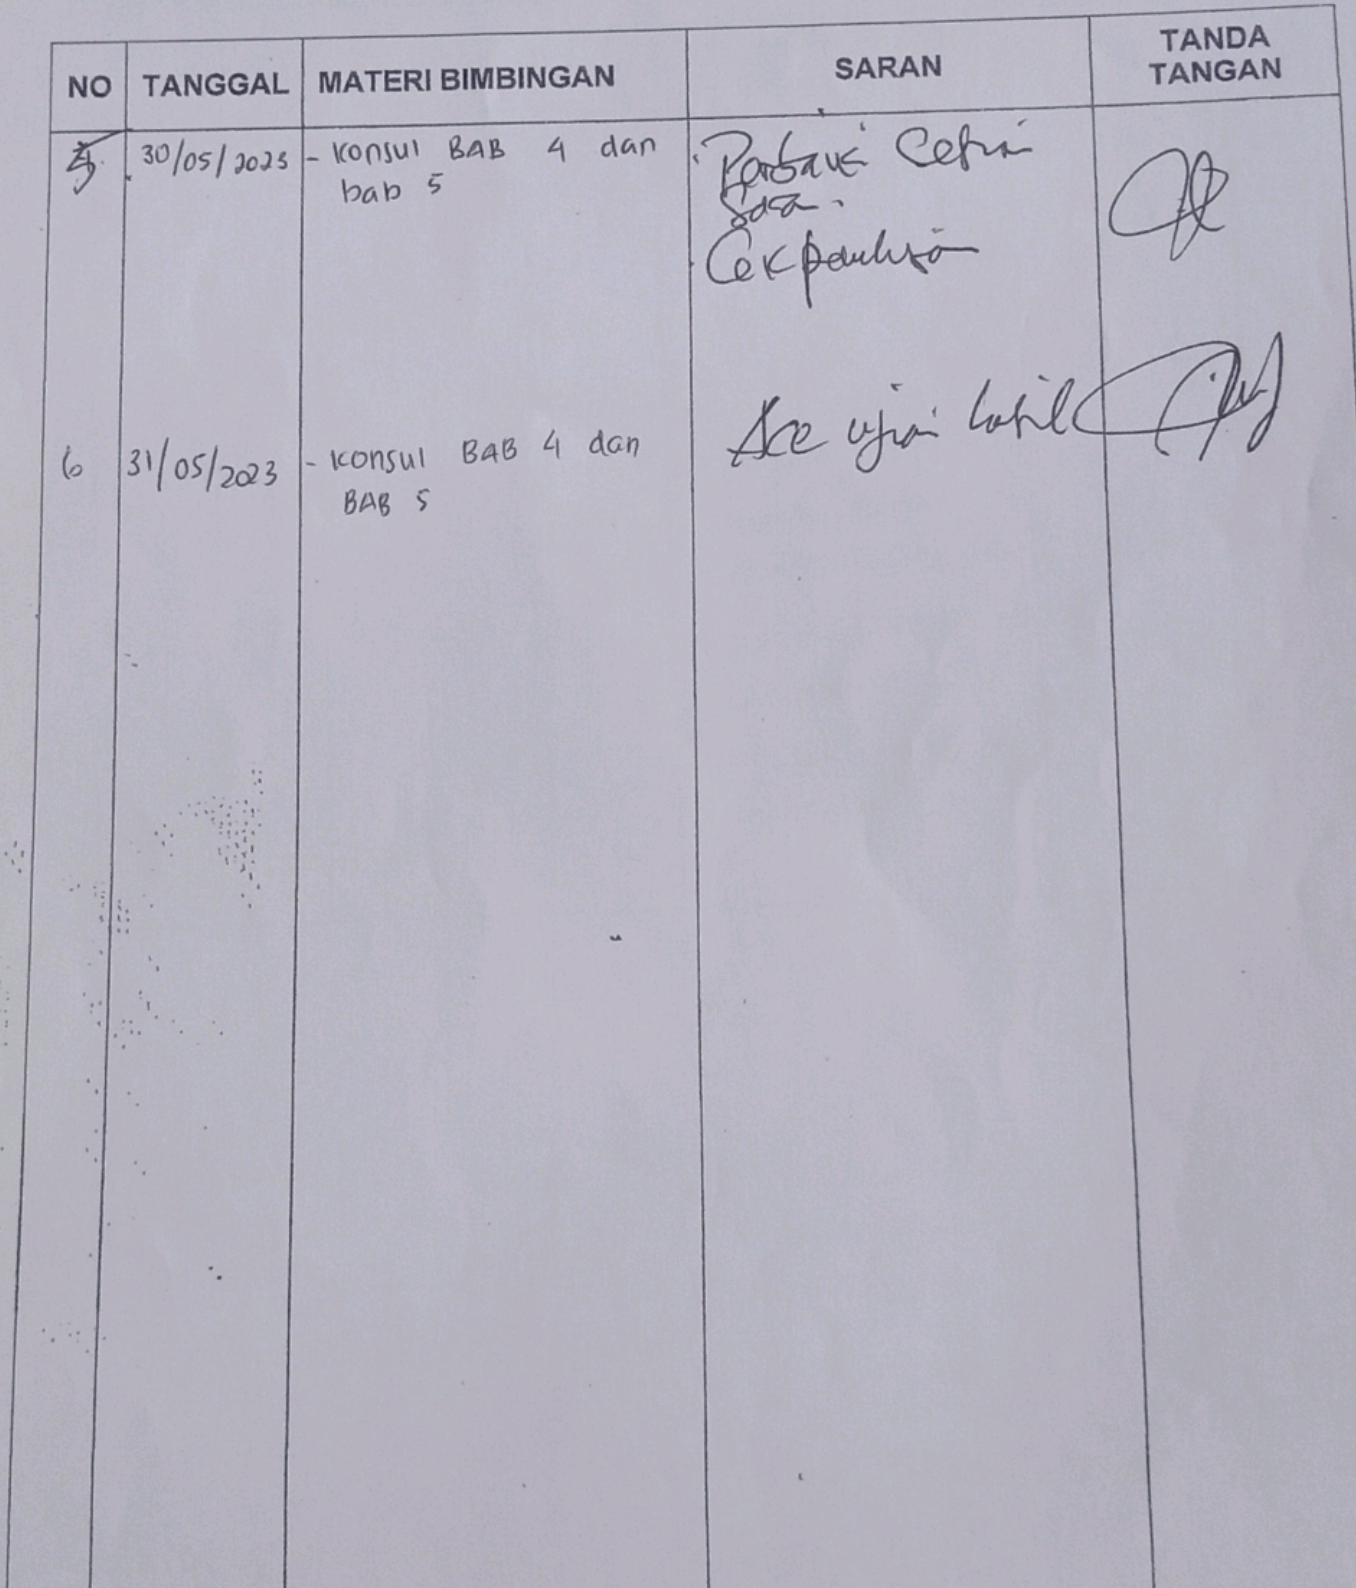 NO TANGGAL MATERI BIMBINGAN SARAN TANDA TANGAN
5. 30/05/2023 - Konsul BAB 4 dan
bab 5
Perbaiki
Cek penulisan
6 31/05/2023 - Konsul BAB 4 dan
BAB 5
Acc ujian hasil